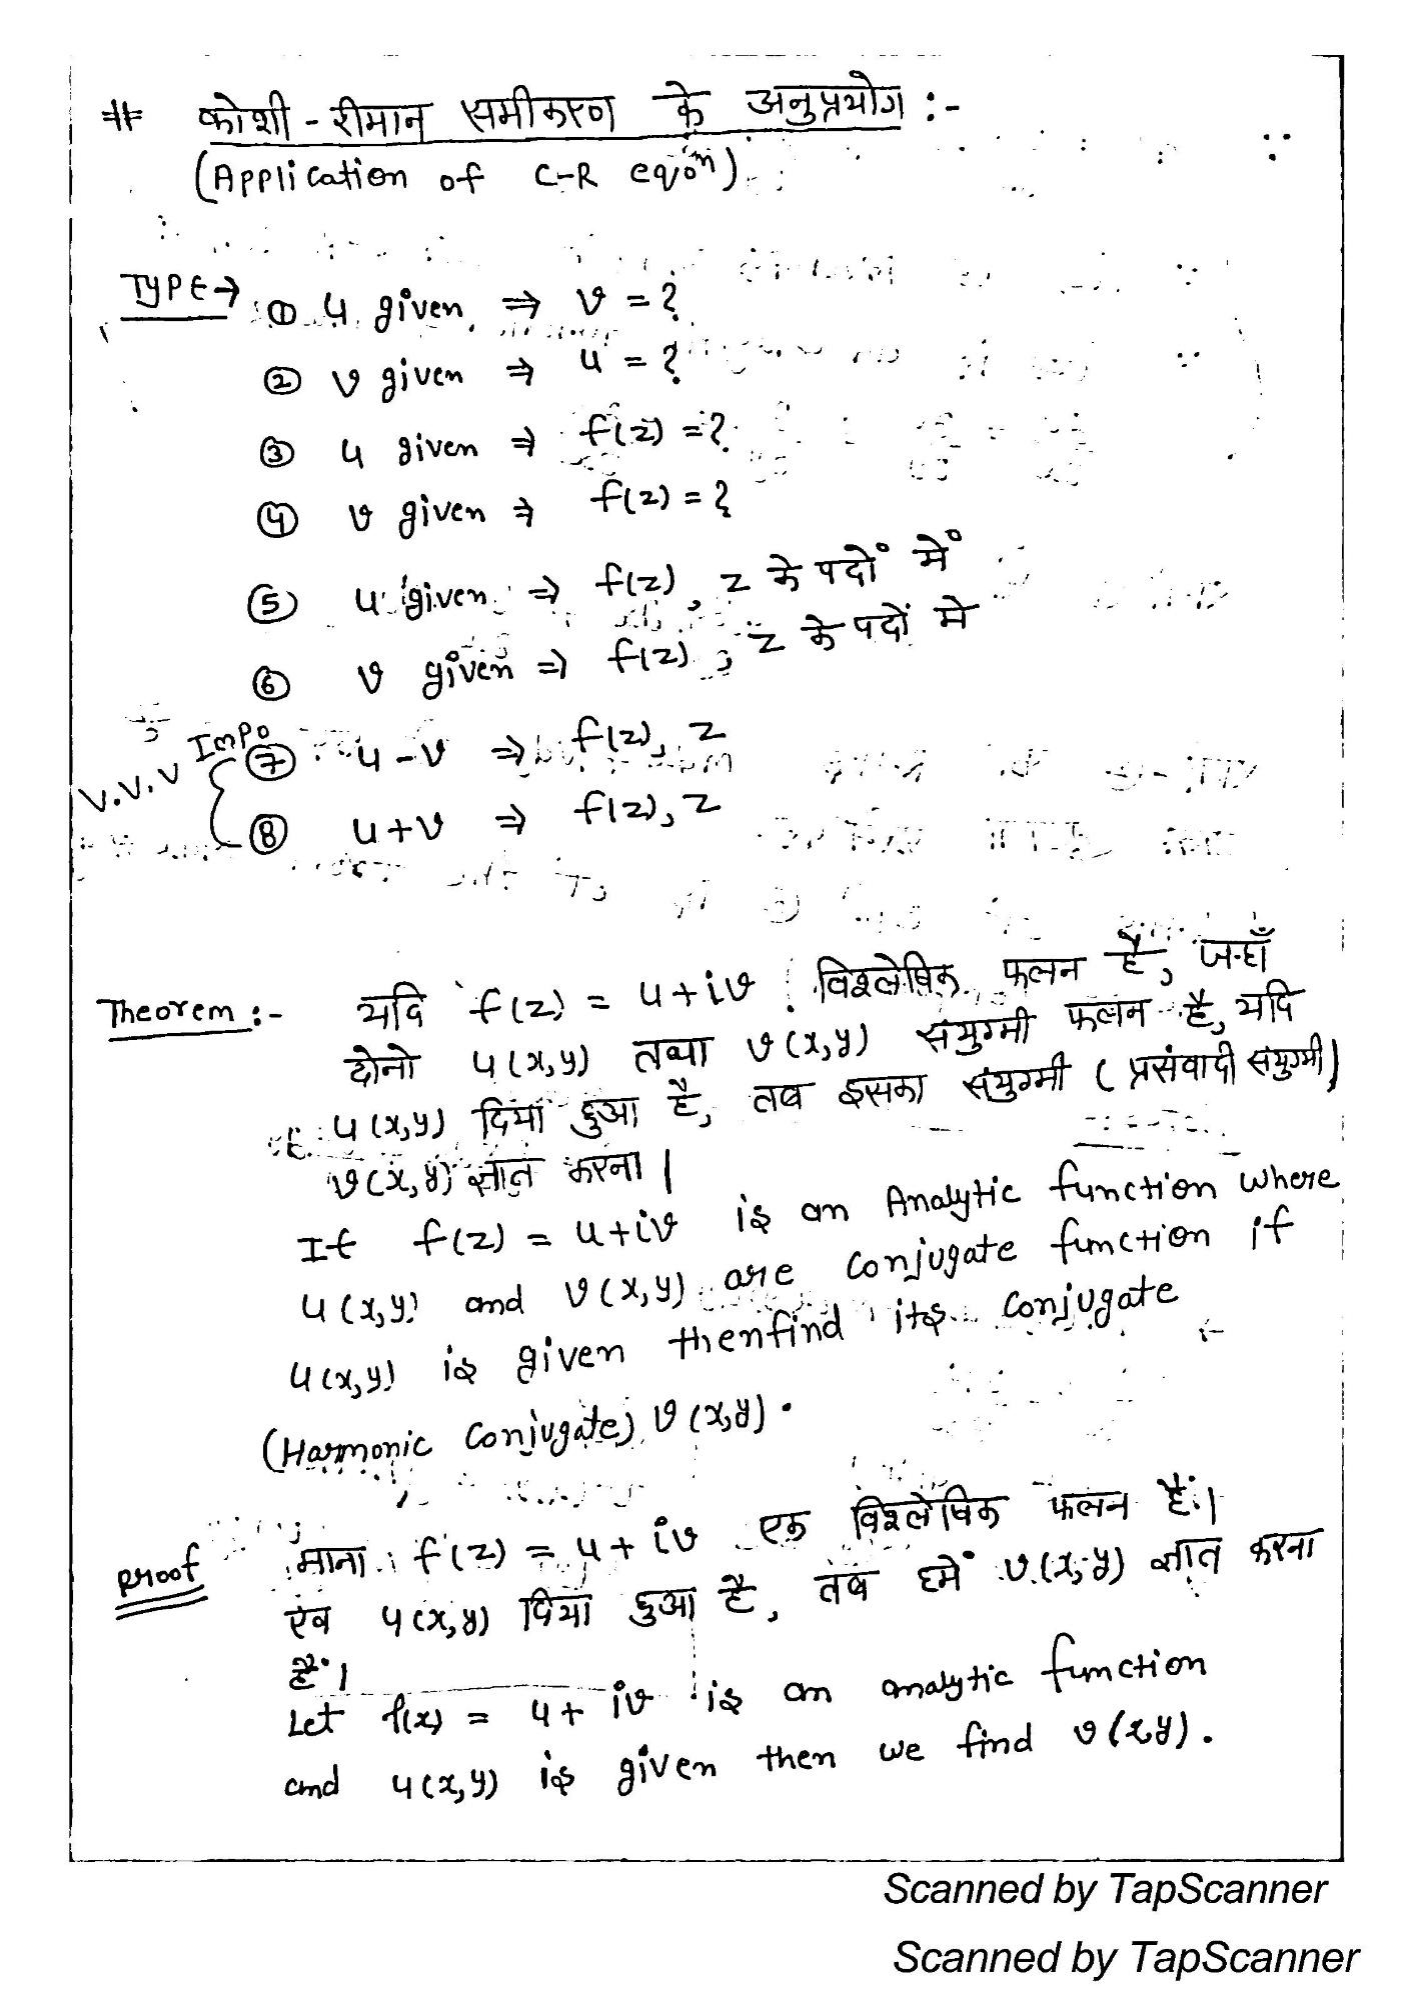 # कोशी-रीमान समीकरण के अनुप्रयोग :-
(Application of C-R eqo^n)
TYPE→ ① u given ⇒ v = ?
② v given ⇒ u = ?
③ u given ⇒ f(z) = ?
④ v given ⇒ f(z) = ?
⑤ u given ⇒ f(z), z के पदों में
⑥ v given ⇒ f(z), z के पदों मे
V.V.V Impo ⑦ u-v ⇒ f(z), z
⑧ u+v ⇒ f(z), z
Theorem :- यदि f(z) = u+iv विश्लेषिक फलन है, जहाँ
दोनो u(x,y) तथा v(x,y) संयुग्मी फलन है, यदि
u(x,y) दिया हुआ है, तब इसका संयुग्मी (प्रसंवादी संयुग्मी)
v(x,y) ज्ञात करना।
If f(z) = u+iv is an Analytic function where
u(x,y) and v(x,y) are conjugate function if
u(x,y) is given then find its conjugate
(Harmonic Conjugate) v(x,y).
Proof माना f(z) = u+iv एक विश्लेषिक फलन है।
एंव u(x,y) दिया हुआ है, तब हमें v(x,y) ज्ञात करना
है।
Let f(x) = u+iv is an analytic function
and u(x,y) is given then we find v(x,y).
Scanned by TapScanner
Scanned by TapScanner